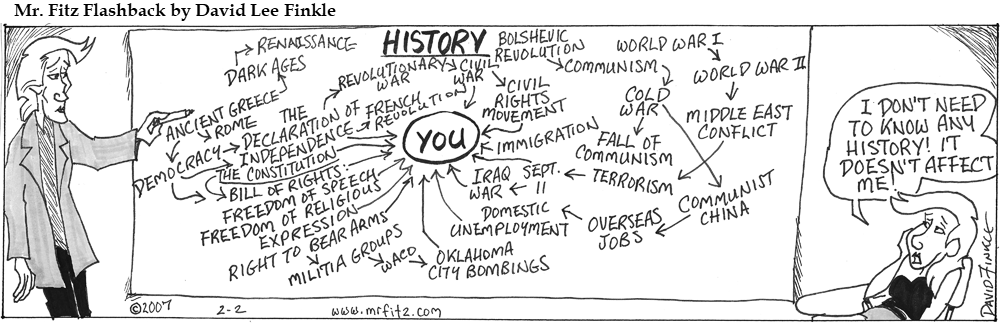 Mr. Fitz Flashback by David Lee Finkle
HISTORY
RENAISSANCE
DARK AGES
ANCIENT GREECE
ROME
DEMOCRACY
THE
DECLARATION OF
INDEPENDENCE
REVOLUTIONARY
WAR
FRENCH
REVOLUTION
CIVIL
WAR
CIVIL
RIGHTS
MOVEMENT
BOLSHEVIC
REVOLUTION
COMMUNISM
WORLD WAR I
WORLD WAR II
COLD
WAR
MIDDLE EAST
CONFLICT
FALL OF
COMMUNISM
IMMIGRATION
YOU
THE CONSTITUTION
BILL OF RIGHTS
FREEDOM OF SPEECH
FREEDOM OF RELIGIOUS
EXPRESSION
RIGHT TO BEAR ARMS
MILITIA GROUPS
WACO
OKLAHOMA
CITY BOMBINGS
IRAQ
WAR
SEPT.
11
TERRORISM
COMMUNIST
CHINA
OVERSEAS
JOBS
DOMESTIC
UNEMPLOYMENT
I DON'T NEED
TO KNOW ANY
HISTORY! IT
DOESN'T AFFECT
ME!
DAVID FINKLE
©2007
2-2
www.mrfitz.com